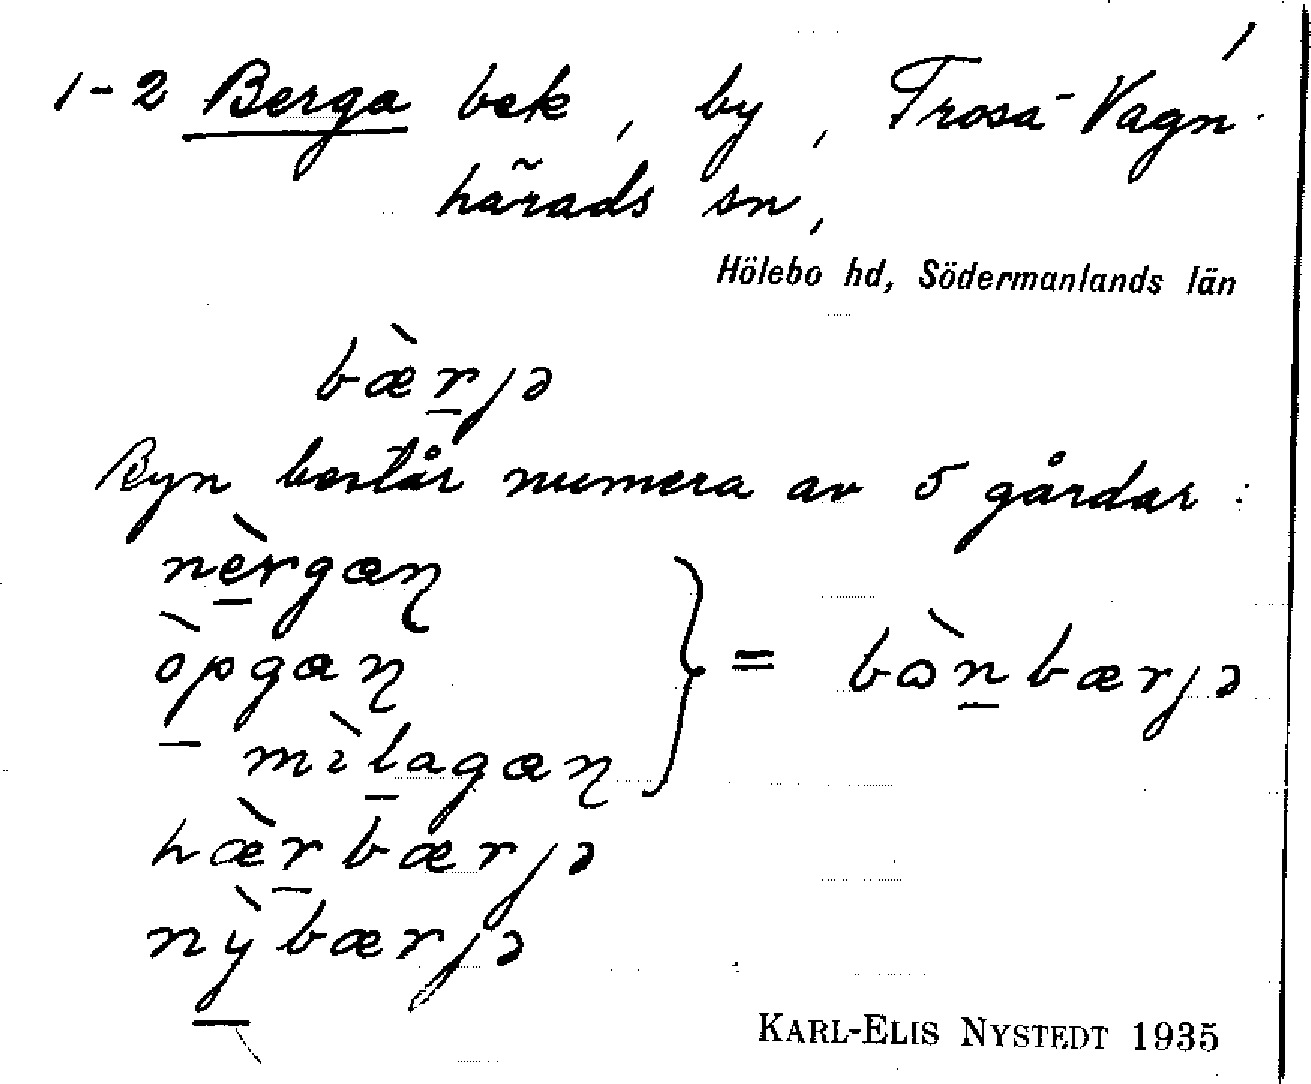 1-2 Berga bek, by, Trosa-Vagn-
härads sn,
Hölebo hd, Södermanlands län
bæ̀r̲jə
Byn består numera av 5 gårdar:
nè̲rgɑɳ
ò̲pgɑɳ
mìl̲agɑɳ
} = bɷ̀n̲bærjə
hæ̀r̲bærjə
nỳ̲bærjə
KARL-ELIS NYSTEDT 1935